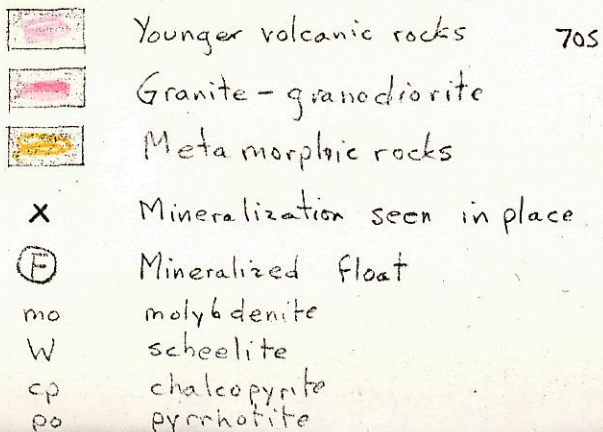 Younger volcanic rocks 70S
Granite - granodiorite
Metamorphic rocks
X Mineralization seen in place
F Mineralized float
mo molybdenite
W scheelite
cp chalcopyrite
po pyrrhotite